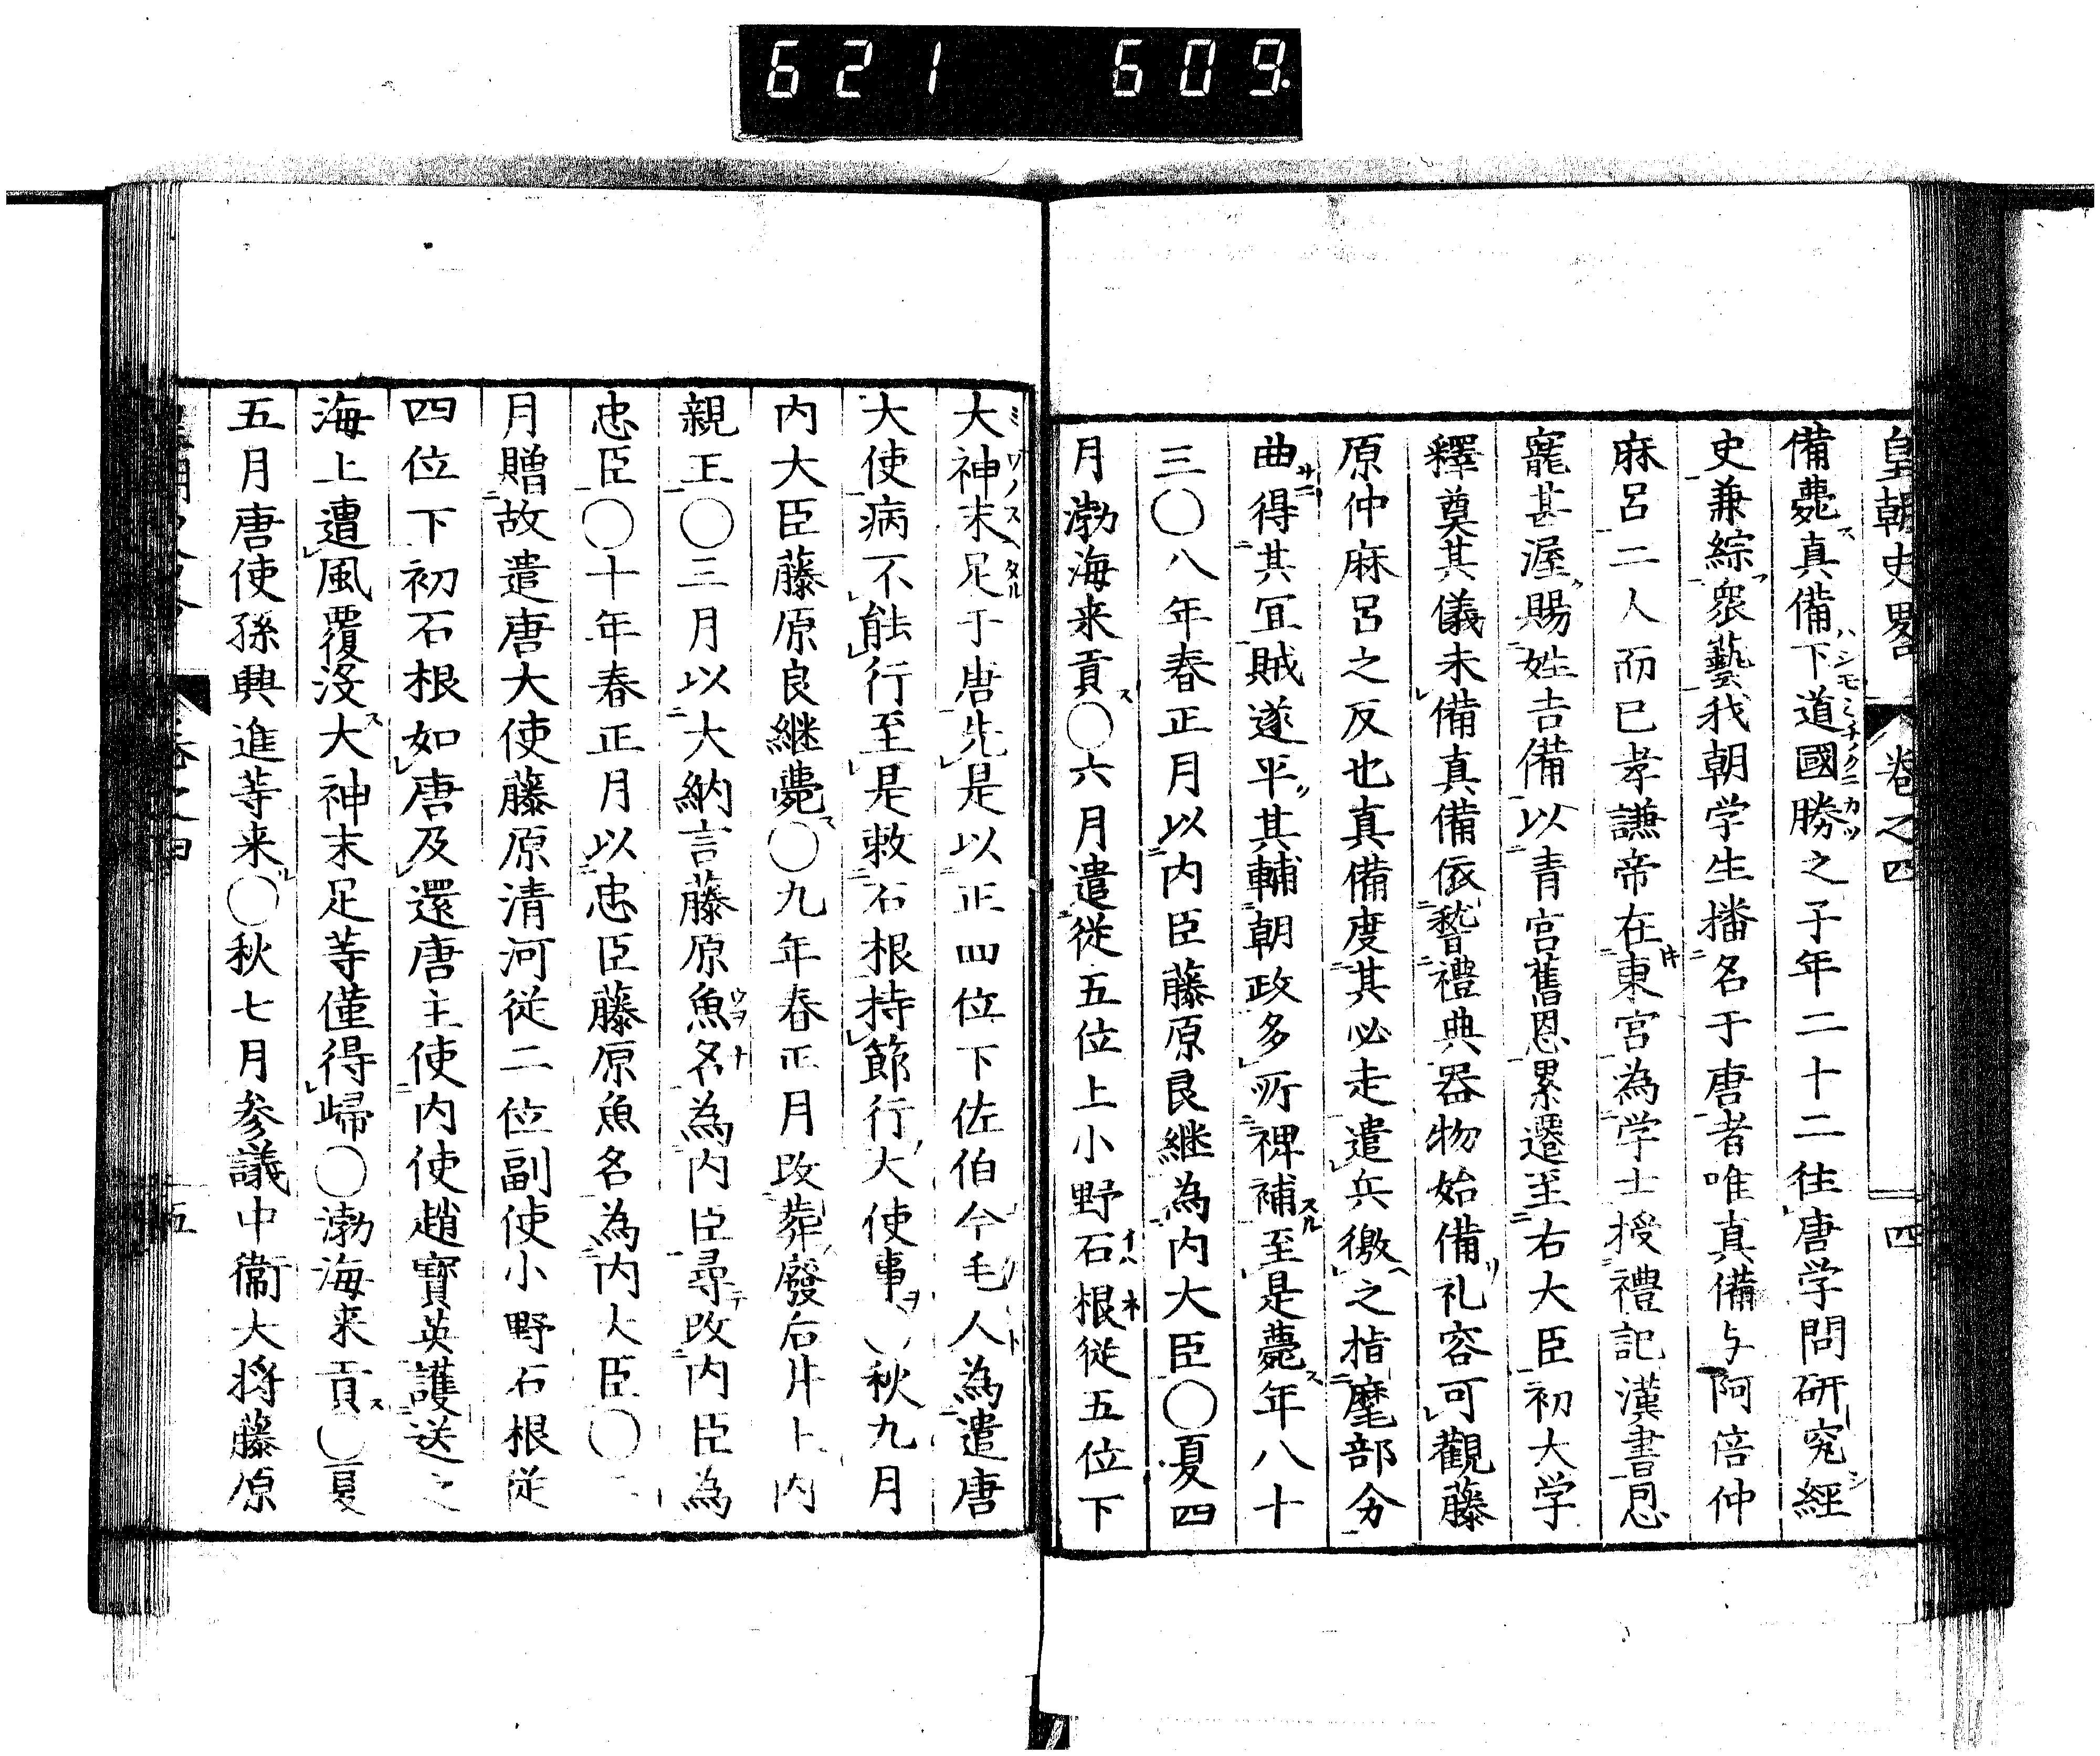 621 609
皇朝史畧 卷之四 四
備薨真備下道國勝之子年二十二往唐学問研究經
史兼綜衆藝我朝学生播名于唐者唯真備与阿倍仲
麻呂二人而已孝謙帝在東宮為学士授禮記漢書恩
寵甚渥賜姓吉備以青宮舊恩累遷至右大臣初大学
釋奠其儀未備真備依稽禮典器物始備礼容可觀藤
原仲麻呂之反也真備度其必走遣兵徼之指麾部分
曲得其宜賊遂平其輔朝政多所裨補至是薨年八十
三〇八年春正月以内臣藤原良継為内大臣〇夏四
月渤海来貢〇六月遣従五位上小野石根従五位下
大神末足于唐先是以正四位下佐伯今毛人為遣唐
大使病不能行至是敕石根持節行大使事〇秋九月
内大臣藤原良継薨〇九年春正月改葬廢后井上内
親王〇三月以大納言藤原魚名為内臣尋改内臣為
忠臣〇十年春正月以忠臣藤原魚名為内大臣〇二
月贈故遣唐大使藤原清河従二位副使小野石根従
四位下初石根如唐及還唐主使内使趙寶英護送之
海上遭風覆没大神末足等僅得歸〇渤海来貢〇夏
五月唐使孫興進等来〇秋七月参議中衞大将藤原
卷之四 五